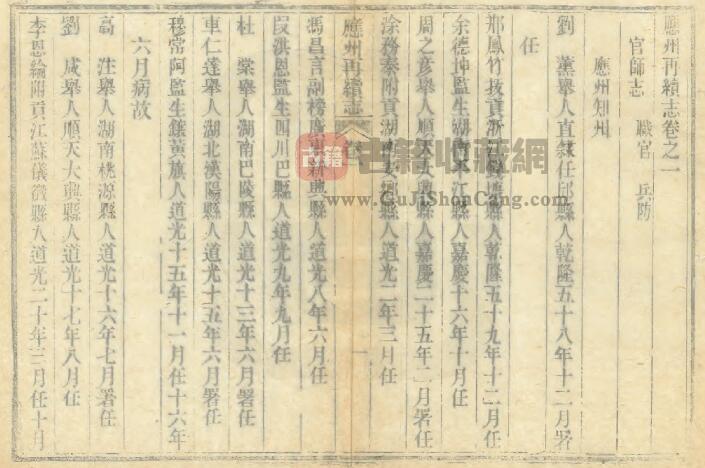 應州再續志卷之一
官師志　職官　兵防
應州知州
劉　薰舉人直隸任邱縣人乾隆五十八年十二月署
任
鄒鳳竹拔貢浙縣人乾隆五十九年十二月任
余德坤監生湖南縣人嘉慶十六年十月任
周之彥舉人順天大興縣人嘉慶二十五年二月署任
涂務泰附貢湖南縣人道光二年三月任
應州再續志　卷　一
馮昌言副榜廣東新興縣人道光八年六月任
段洪恩監生四川巴縣人道光九年九月任
杜　棠舉人湖南巴陵縣人道光十三年六月署任
車仁達舉人湖北漢陽縣人道光十五年六月署任
穆常阿監生鑲黃旗人道光十五年十一月任十六年
六月病故
高　注舉人湖南桃源縣人道光十六年七月署任
劉　成舉人順天大興縣人道光十七年八月任
李恩綸附貢江蘇儀徵縣人道光二十年三月任十月
古籍
古籍收藏網
www.GuJiShouCang.com